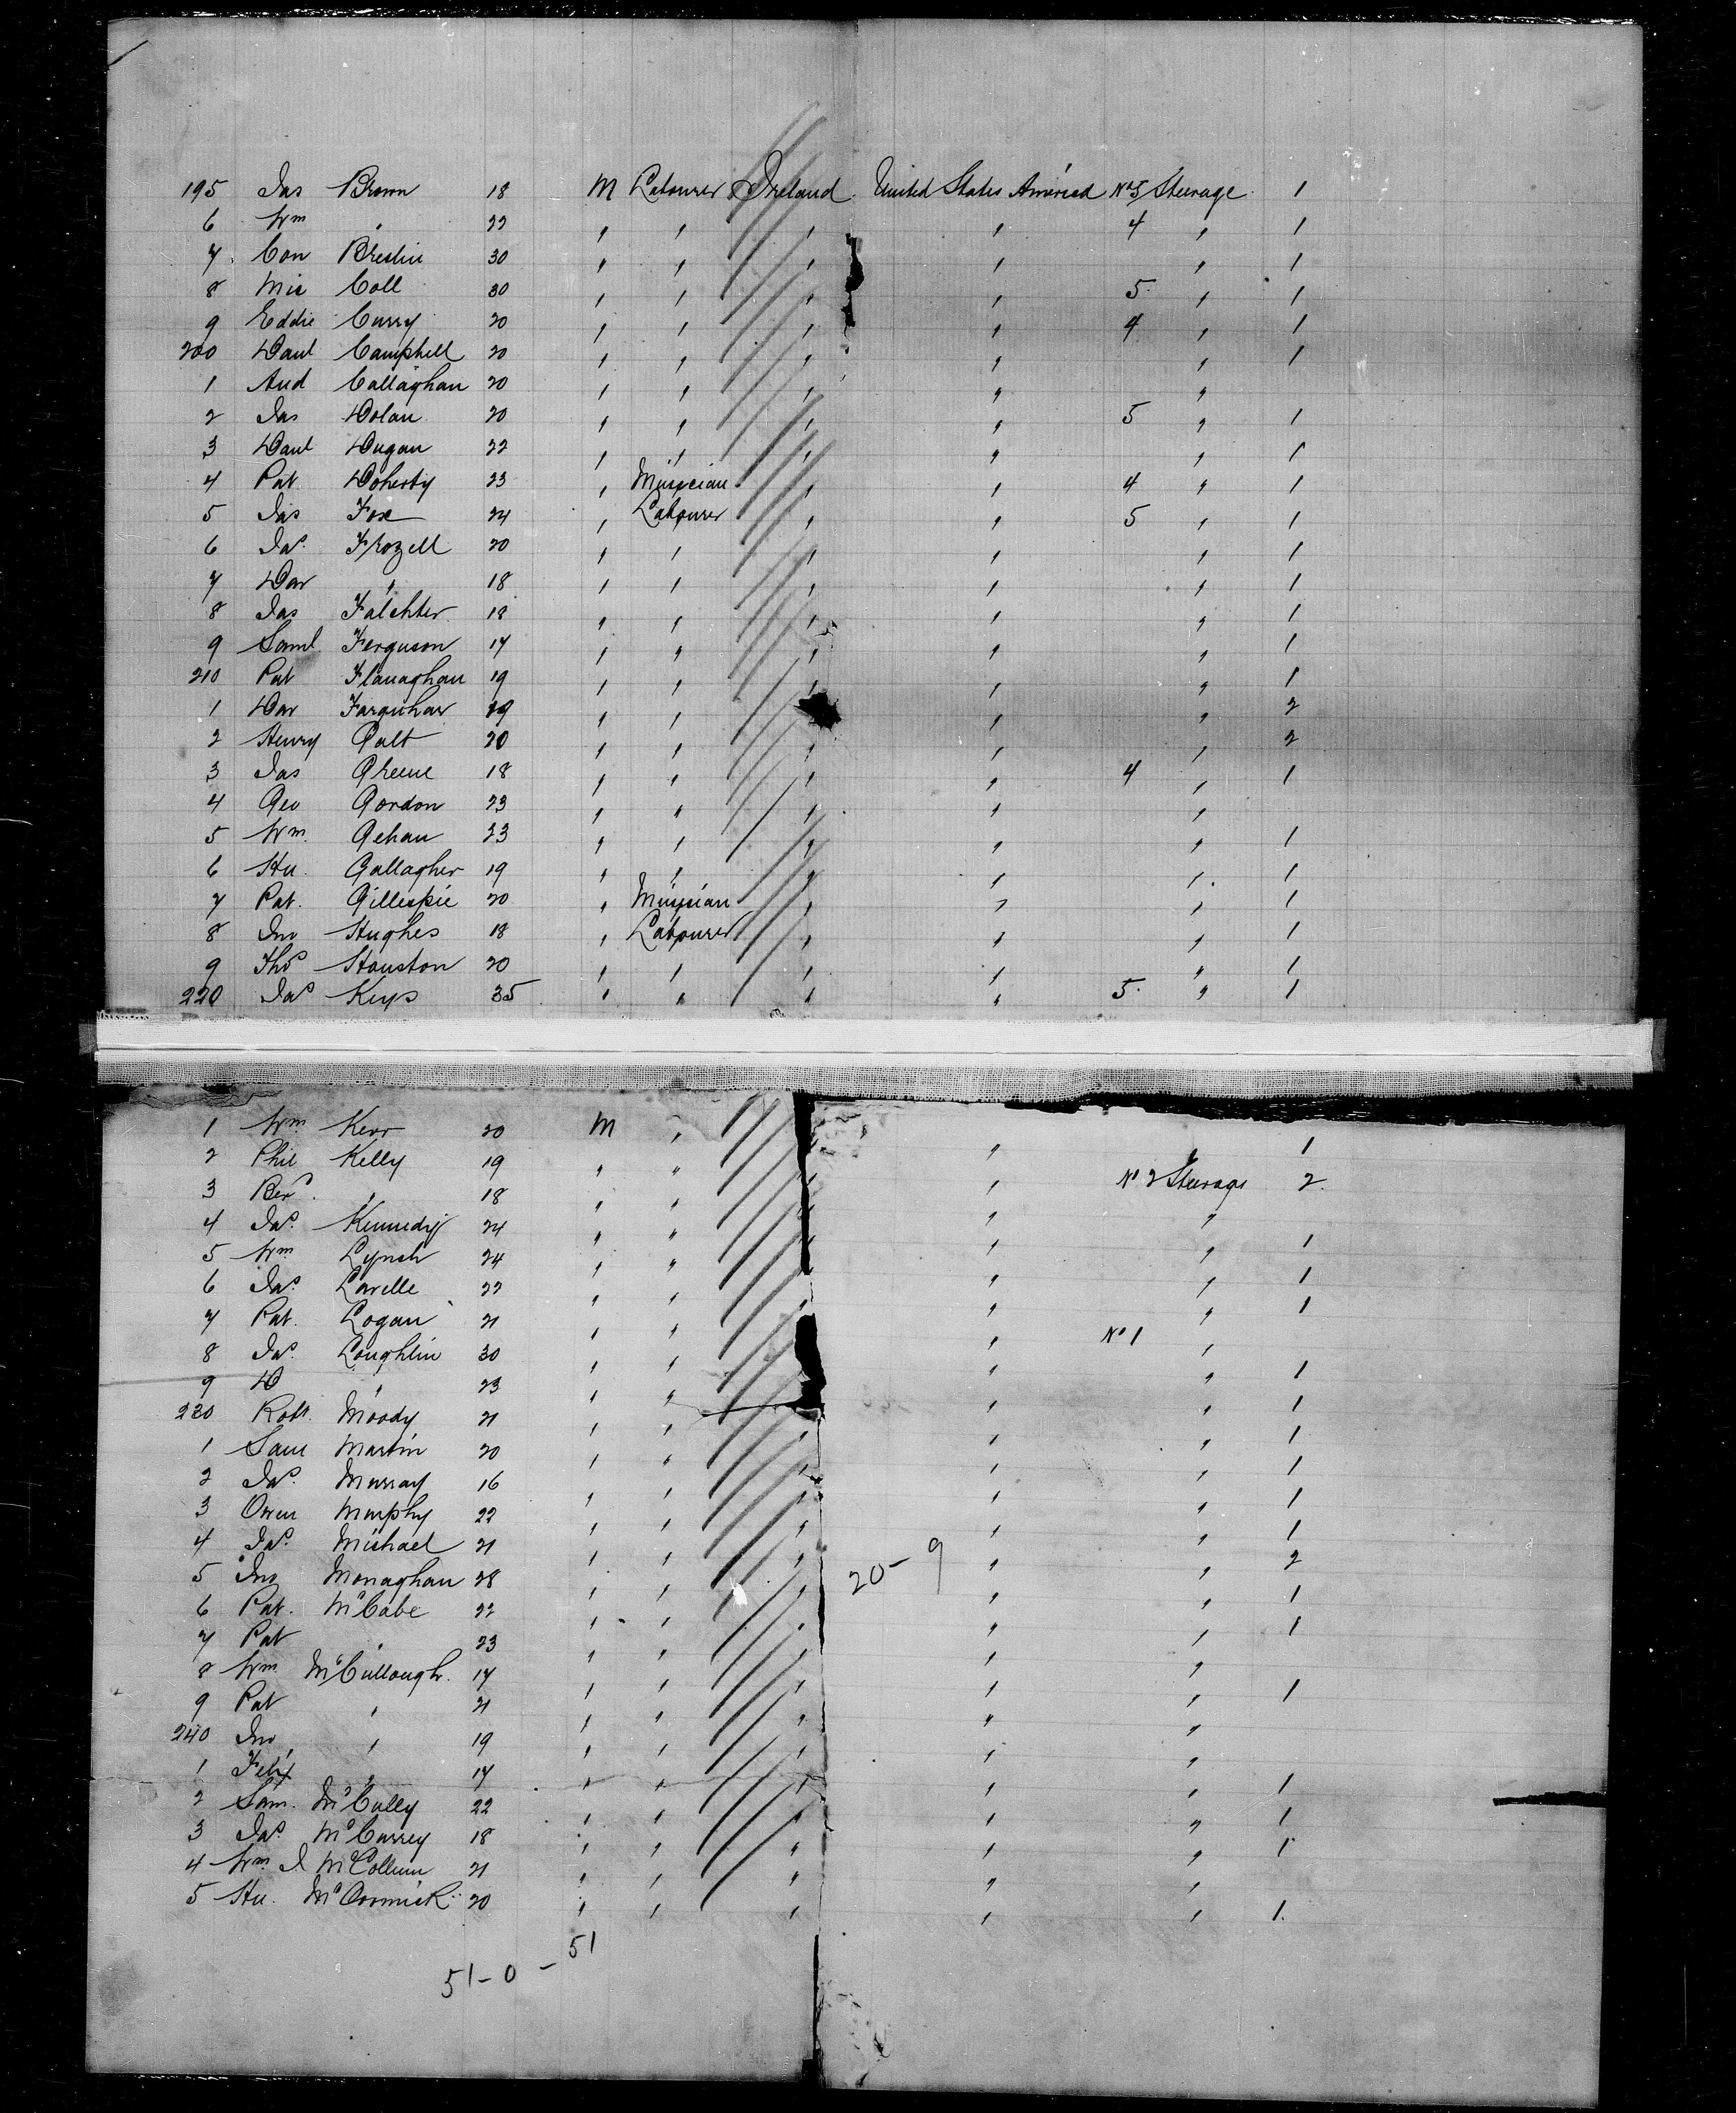 195 Jas Brown 18 M Labourer Ireland United States America No 5 Steerage 1
6 Wm " 22 " " " " 4 " 1
7 Con Breslin 30 " " " " " 1
8 Mic Coll 30 " " " " 5 " 1
9 Eddie Curry 20 " " " " 4 " 1
200 Danl Campbell 20 " " " " " 1
1 And Callaghan 20 " " " " "
2 Jas Dolan 20 " " " " 5 " 1
3 Danl Dugan 22 " " " " " 1
4 Pat Doherty 23 " Musician " " 4 " 1
5 Jas Fox 24 " Labourer " " 5 " 1
6 Jas Frozell 20 " " " " " 1
7 Dav " 18 " " " " " 1
8 Jas Falchter 18 " " " " " 1
9 Saml Ferguson 17 " " " " " 1
210 Pat Flanaghan 19 " " " " " 1
1 Dav Farquhar 29 " " " " 2
2 Henry Galt 20 " " " " " 2
3 Jas Greene 18 " " " " 4 " 1
4 Geo Gordon 23 " " " " "
5 Wm Gehan 23 " " " " " 1
6 Hu Gallagher 19 " " " " " 1
7 Pat. Gillespie 20 " Musician " " " 1
8 Jno Hughes 18 " Labourer " " " 1
9 Thos Houston 20 " " " " " 1
220 Jas Keys 35 " " " " 5 " 1
1 Wm Kerr 20 M " " 1
2 Phil Kelly 19 " " " No 2 Steerage 2
3 Ber " 18 " " " "
4 Jas Kennedy 24 " " " " 1
5 Wm Lynch 24 " " " " 1
6 Jas Lavelle 22 " " " " 1
7 Pat. Logan 21 " " " No 1 "
8 Jas Loughlin 30 " " " " 1
9 D " 23 " " " " 1
230 Robt Moody 21 " " " " 1
1 Sam Martin 20 " " " " 1
2 Jas Murray 16 " " " " " 1
3 Owen Murphy 22 " " " " " 1
4 Jas Michael 21 " " " " " 2
5 Jno Monaghan 28 " " " 20 - 9 " " 1
6 Pat. McCabe 22 " " " " " 1
7 Pat " 23 " " " " "
8 Wm McCullough 17 " " " " " 1
9 Pat " 21 " " " " "
240 Jno " 19 " " " " "
1 Felix " 17 " " " " " 1
2 Sam. McCully 22 " " " " " 1
3 Jas McCurrey 18 " " " " " 1
4 Wm J McCollum 21 " " " " "
5 Hu. McCormick 20 " " " " " 1
51 - 0 - 51